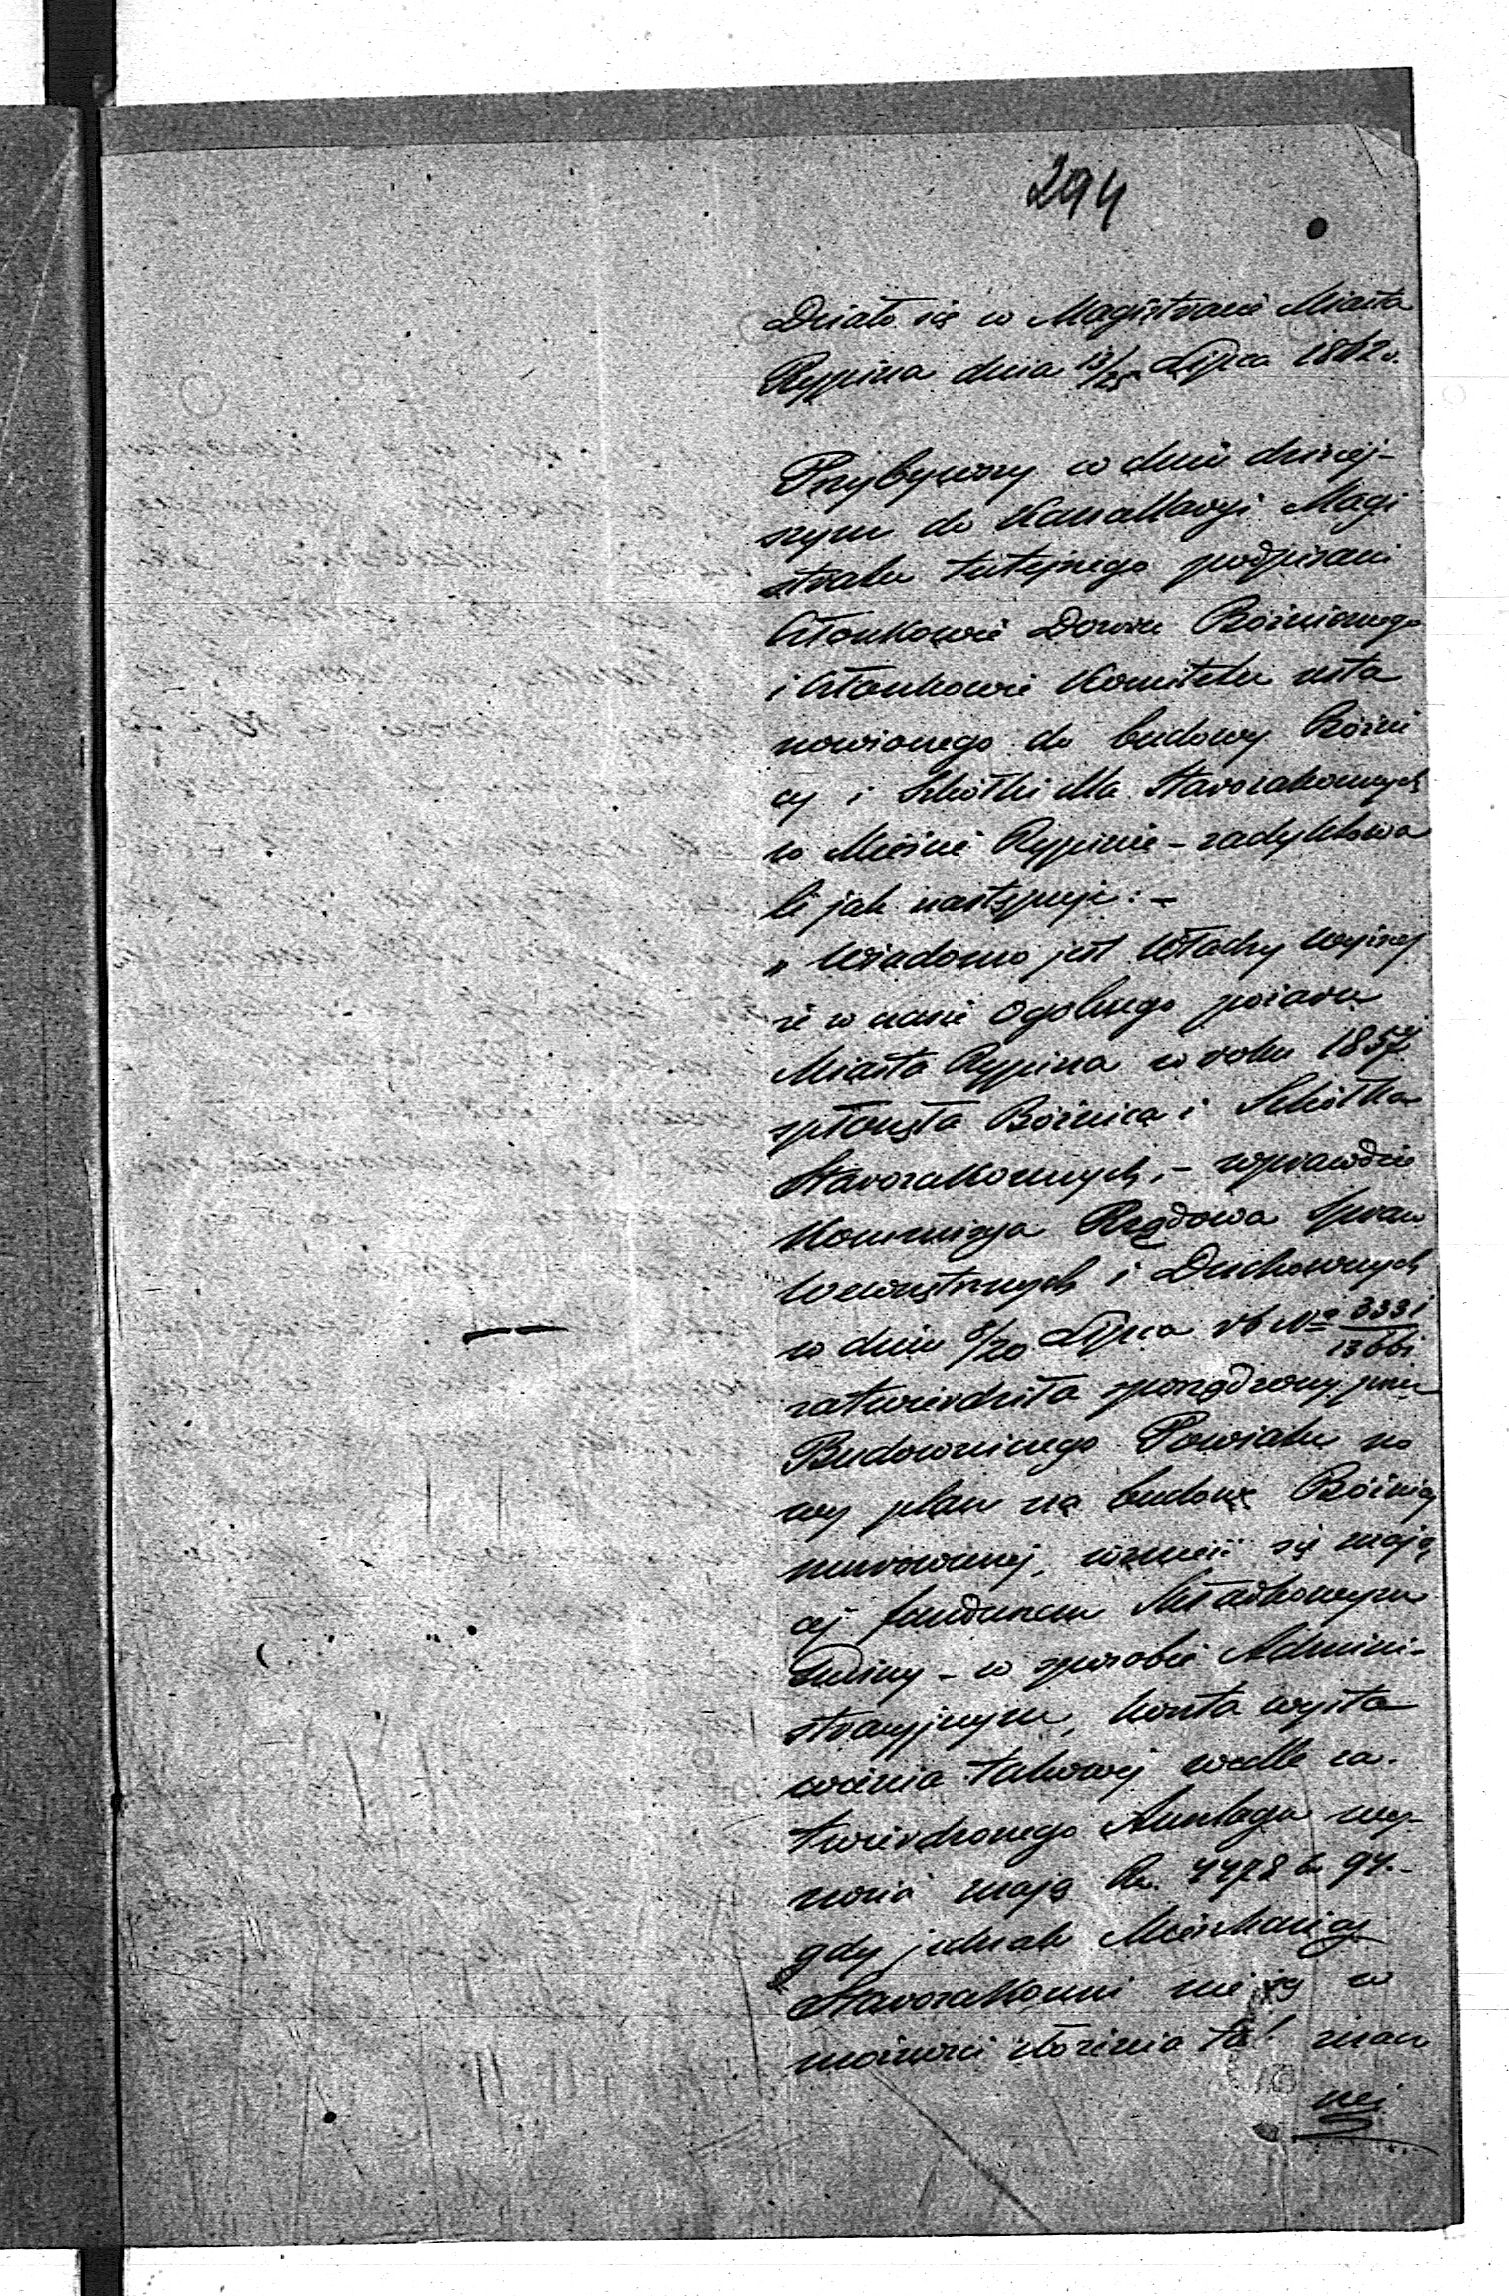 294
Działo się w Magistracie Miasta
Rypina dnia 13/25 Lipca 1862 r.
Przybywszy w dniu dzisiej-
szym do Kancellaryi Magi
stratu tutejszego podpisani
Członkowie Dozoru Bóżniczego
i Członkowie Komitetu usta
nowionego do budowy Bóżni
cy i Szkółki dla Starozakonnych
w Mieście Rypinie – zadyktowa
li jak następuje: –
„Wiadomo jest Władzy Wyższej
że w czasie ogólnego pożaru
Miasta Rypina w roku 1857
spłonęła Bóżnica i Szkółka
Starozakonnych, – wprawdzie
Kommisya Rządowa Spraw
Wewnętrznych i Duchownych
w dniu 8/20 Lipca r b N° 3331/13661
zatwierdziła sporządzony przez
Budowniczego Powiatu no
wy plan na budowę Bóżnicy
murowanej, wznieść się mają
cej funduszem Składkowym
Gminy – w sposobie Admini-
stracyjnym, koszta wysta
wienia takowej wedle za-
twierdzonego Anszlagu wy-
nosić mają Rs. 4478 k 94. –
gdy jednak Mieszkańcy
Starozakonni nie są w
możności złożenia ta! znacz
nej